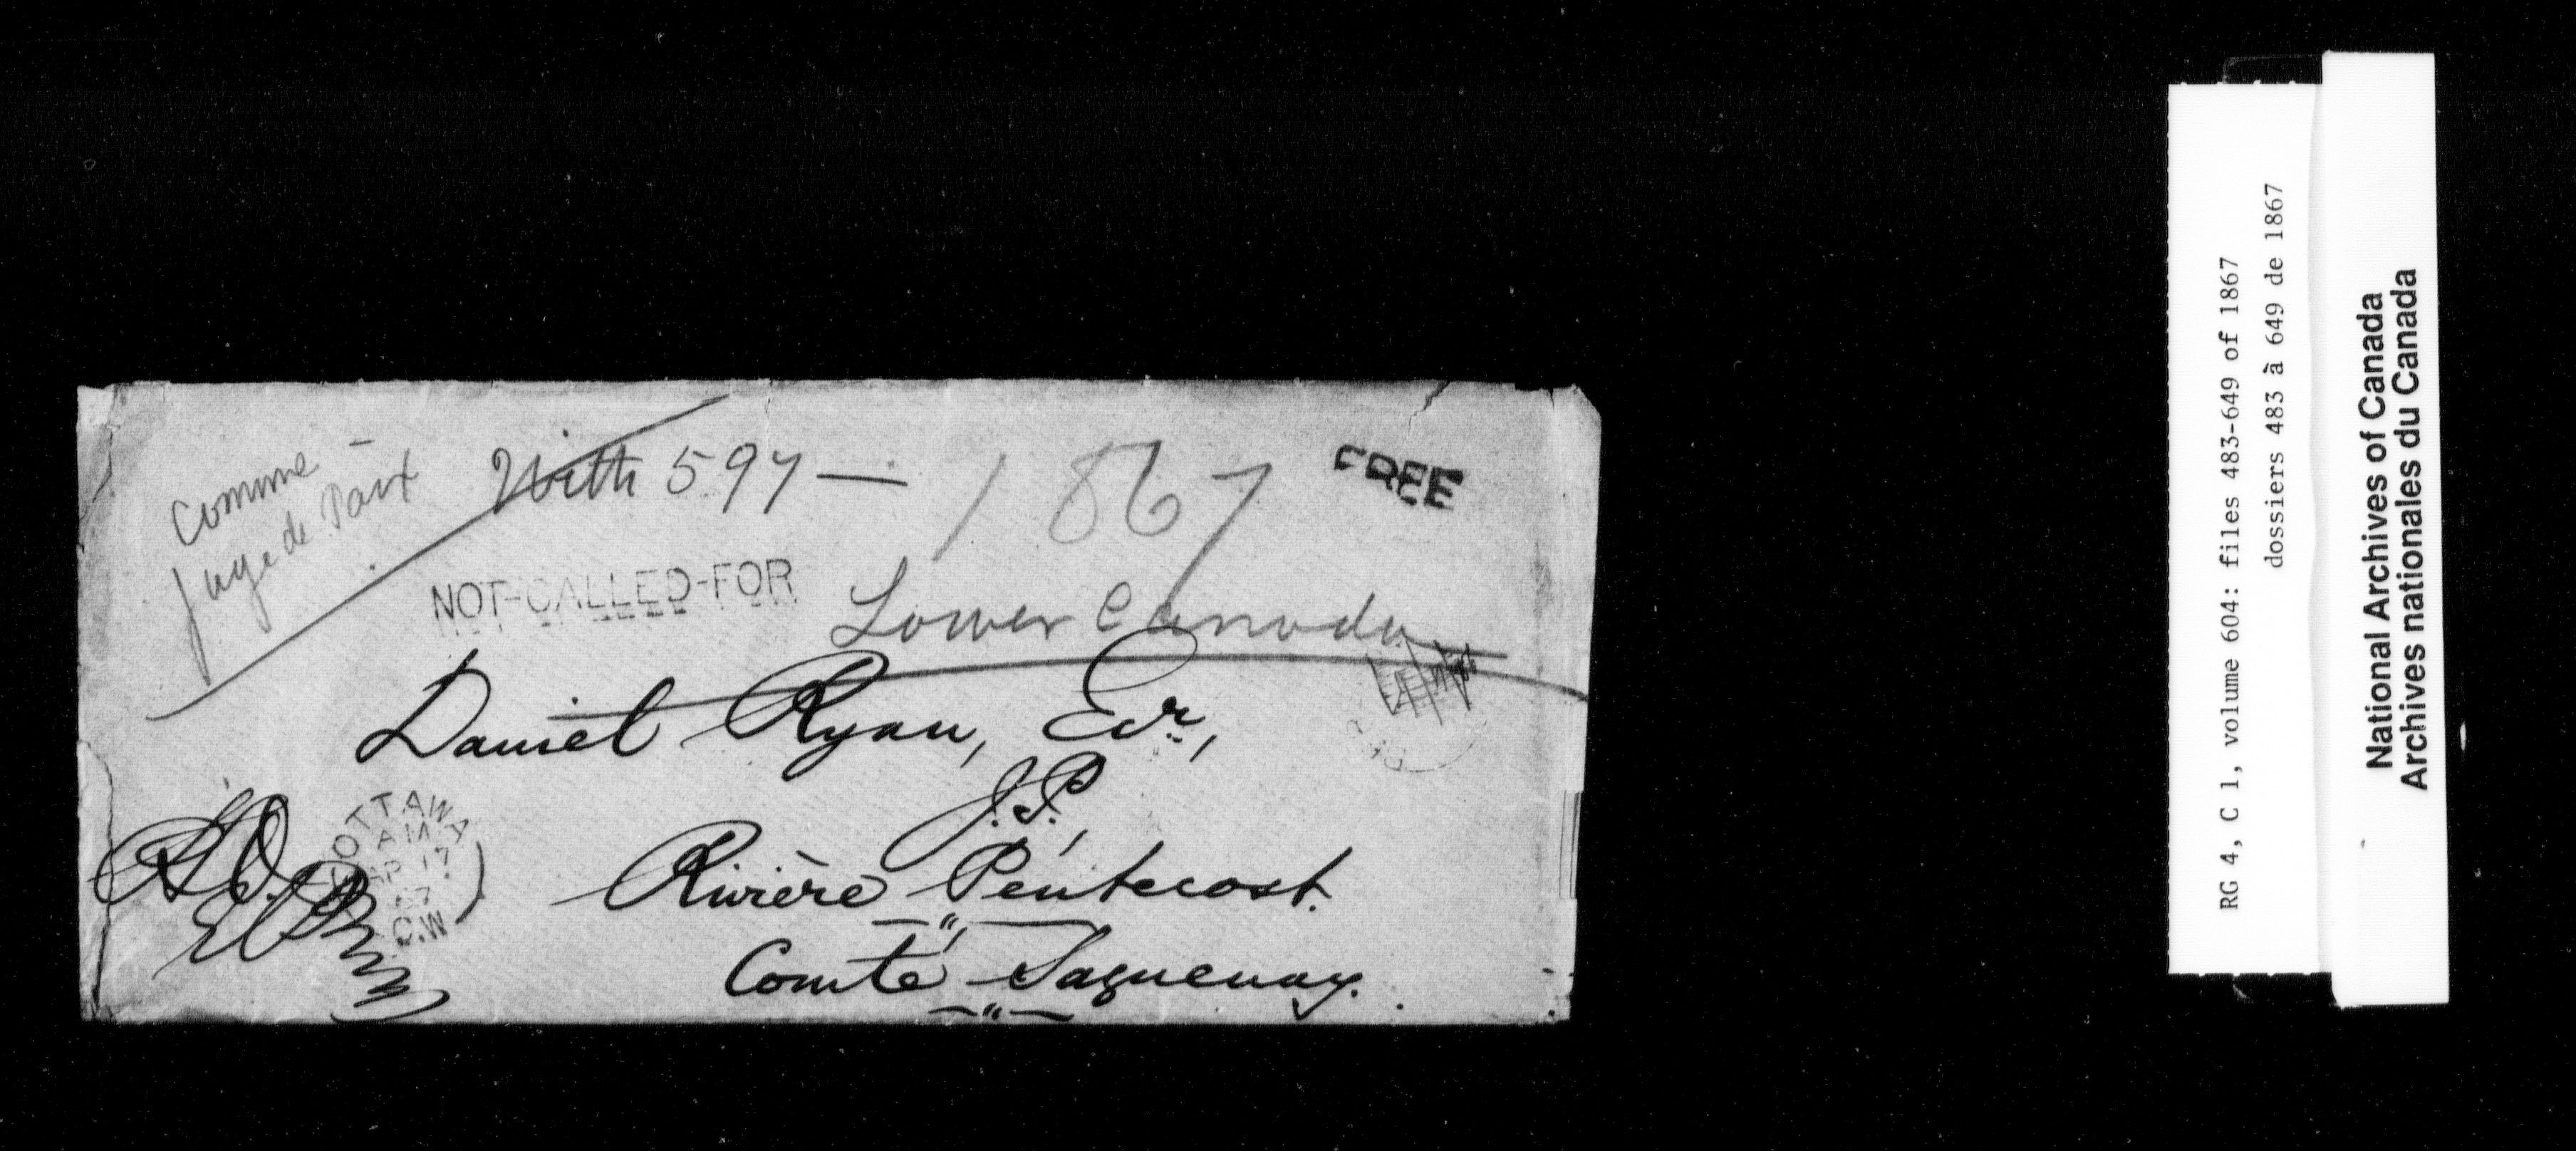 Comme
Juge de Paix
With 597 — 1867
FREE
NOT-CALLED-FOR
Lower Canada
Daniel Ryan, Esr,
J.P.,
Rivière Pentecost.
Comté Saguenay.
OTTAWA
AM
AP 17
67
C.W
RG 4, C 1, volume 604: files 483-649 of 1867
dossiers 483 à 649 de 1867
National Archives of Canada
Archives nationales du Canada